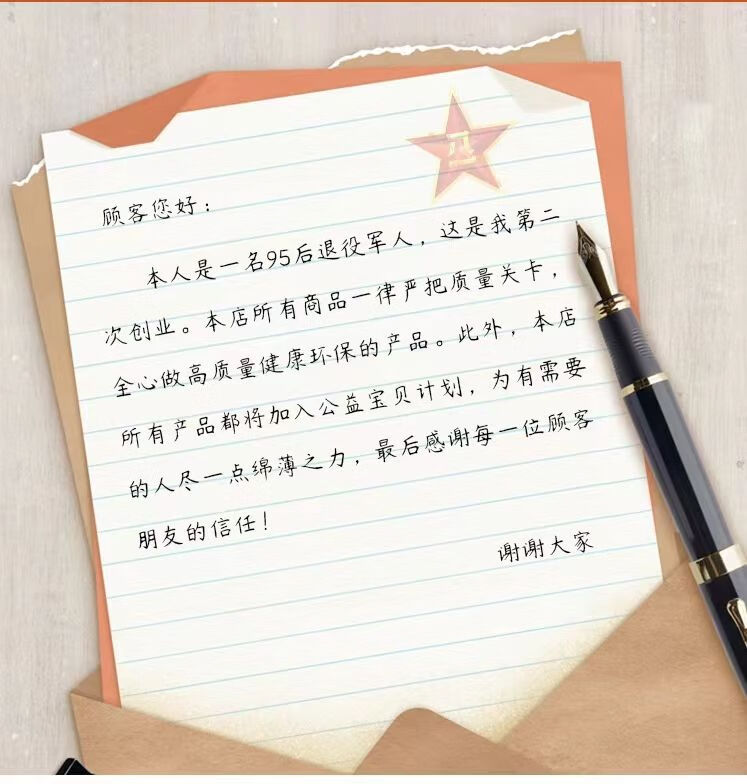 八一
顾客您好：
本人是一名95后退役军人，这是我第二
次创业。本店所有商品一律严把质量关卡，
全心做高质量健康环保的产品。此外，本店
所有产品都将加入公益宝贝计划，为有需要
的人尽一点绵薄之力，最后感谢每一位顾客
朋友的信任！
谢谢大家